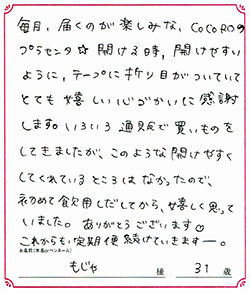 毎月、届くのが楽しみな、CoCoROの
プラセンタ☆ 開ける時、開けやすい
ように、テープに折り目がついていて
とても嬉しい心づかいに感謝
します。いろいろ通販で買いものを
してきましたが、このような開けやすく
してくれているところはなかったので、
初めて飲用しだしてから、嬉しく思って
いました。ありがとうございます☺
これからも定期便続けていきますー。
お名前(本名orペンネーム)
もじゃ 様 31 歳